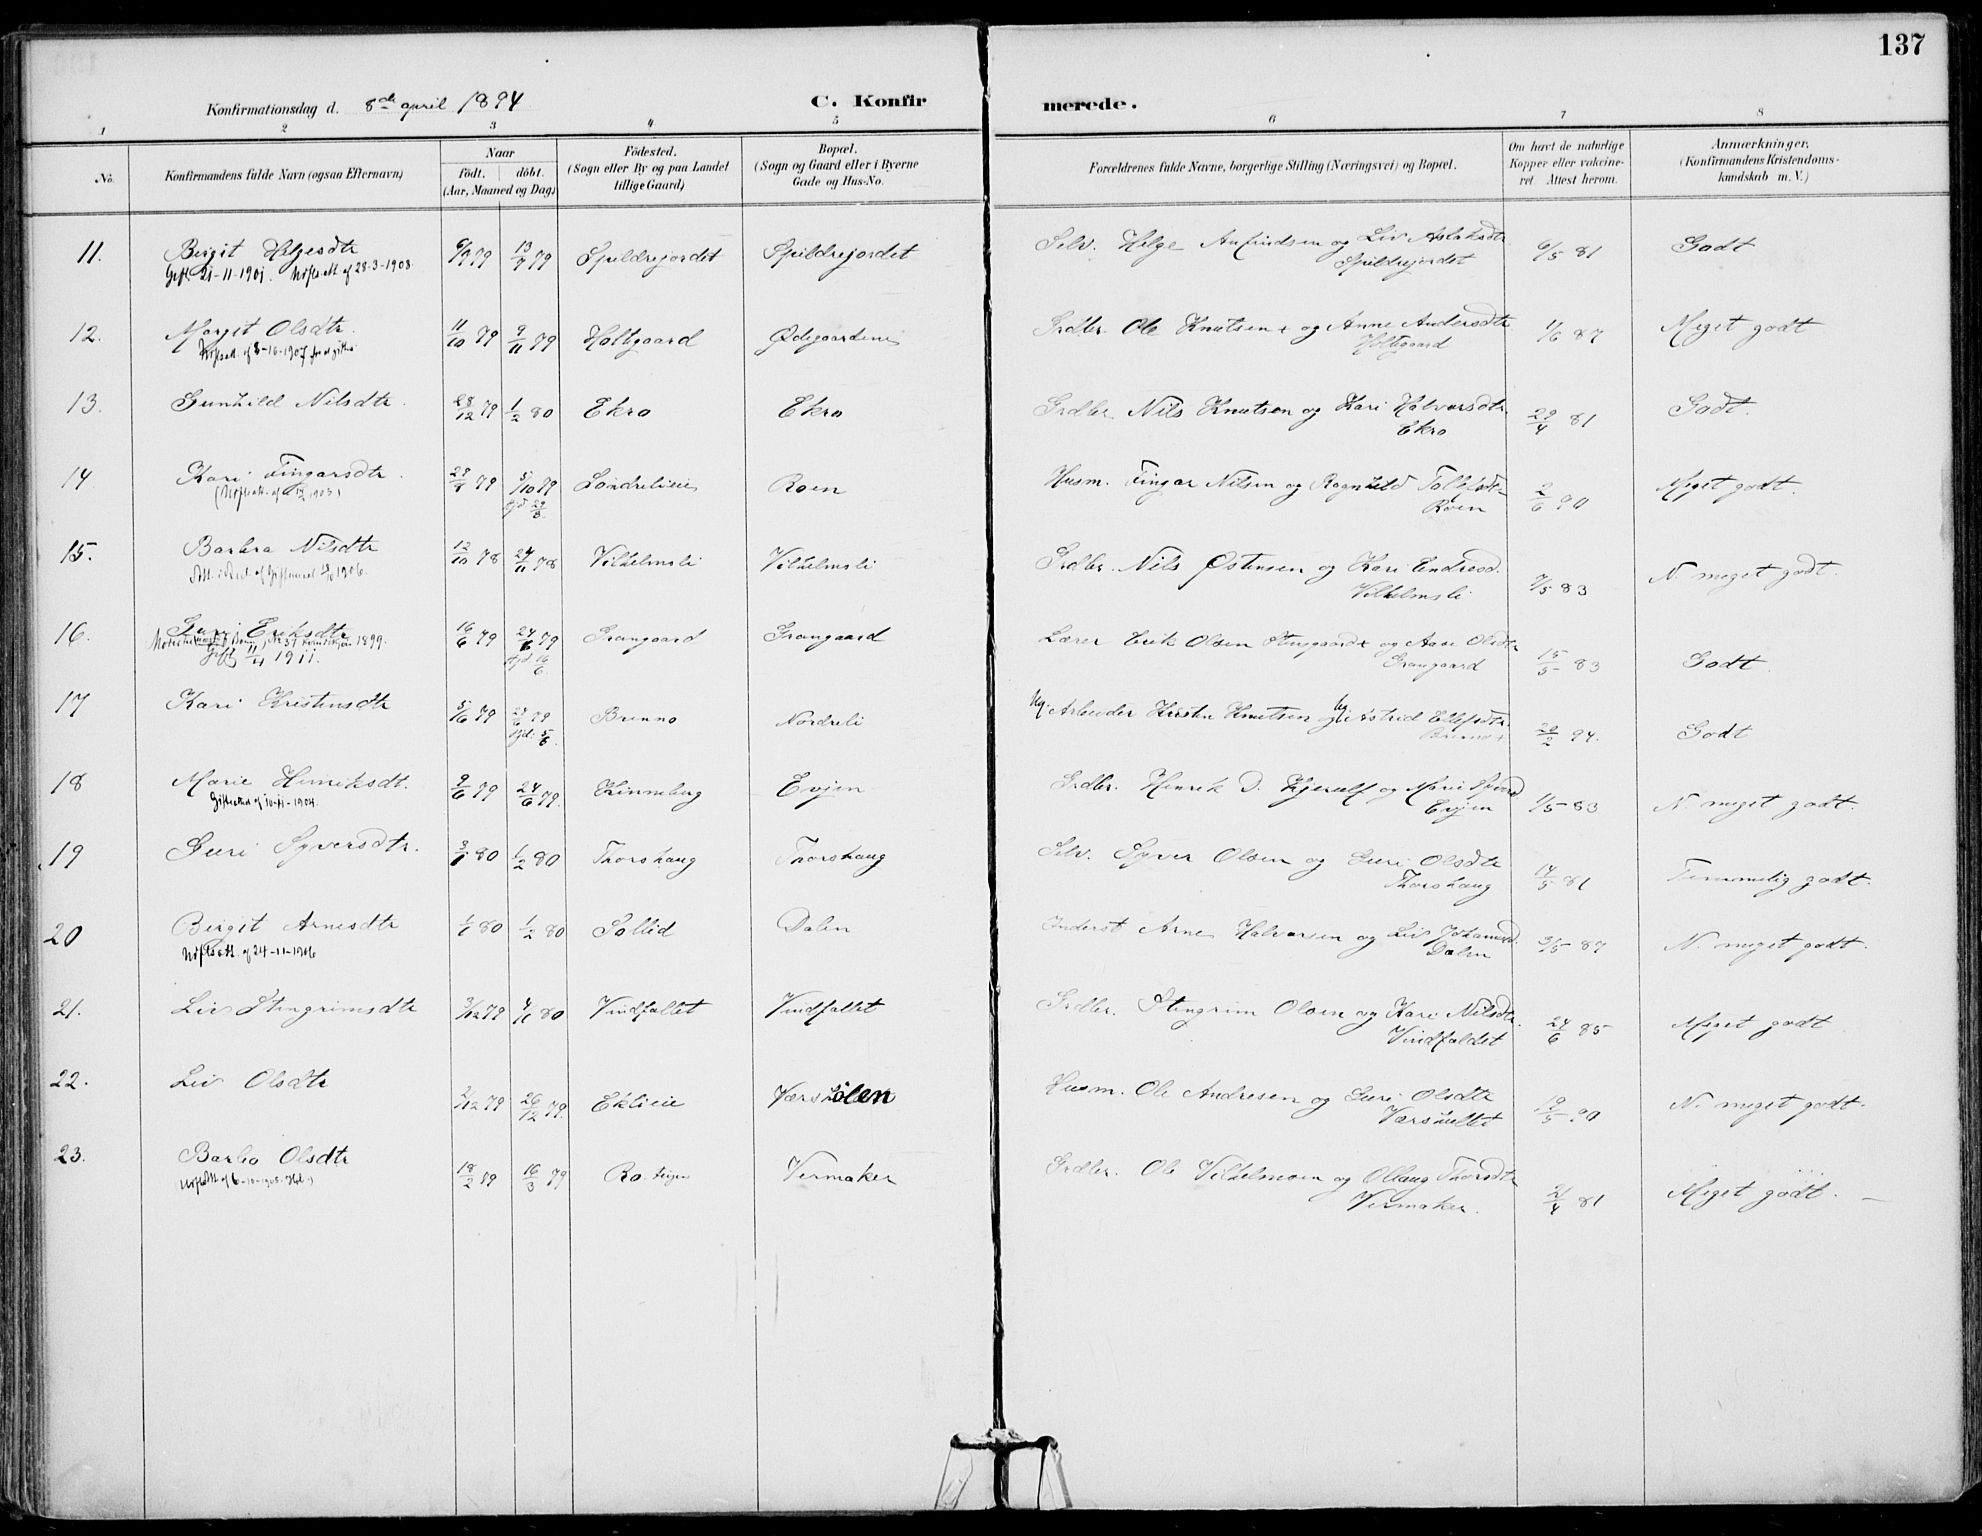 137
Konfirmationsdag d. 8de april 1894 C. Konfirmerede.
1 2 3 4 5 6 7 8
No. Konfirmandens fulde Navn (ogsaa Efternavn) Naar födt. döbt. (Aar, Maaned og Dag) Födested. (Sogn eller By og paa Landet tillige Gaard) Bopæl. (Sogn og Gaard eller i Byerne Gade og Hus-No. Forældrenes fulde Navne, borgerlige Stilling (Næringsvei) og Bopæl. Om havt de naturlige Kopper eller vakcineret Attest herom. Anmærkninger. (Konfirmandens Kristendomskundskab m. V.)
11. Birgit Helgesdtr 6/9 79 13/9 79 Spildrejordet Spildrejordet Selv. Helge Anfindsen og Liv Aslaksdtr 6/5 81 Godt
Gift 21-11-1901. 28-3-1908 Spildrejordet
12. Margit Olsdtr. 11/10 79 9/11 79 Holtgaard Ødegaardene Grdbr. Ole Knutsen + og Anne Andersdtr 1/6 87 Meget godt
Holtgaard
13. Gunhild Nilsdtr. 28/12 79 1/2 80 Ekro Ekro Grdbr. Nils Knutsen og Kari Halvorsdtr 29/4 81 Godt.
Ekro
14. Kari Fingarsdtr. 28/8 79 5/10 79 Roen Husm. Fingar Nilsen og Ragnhild 2/6 90 Meget godt.
1903) hjd. 29/8. Roen
15. Barbra Nilsdtr 12/10 78 24/11 78 Vilhelmsli Vilhelmsli Grdbr. Nils Østensen og Kari Endresd. 7/5 83 N. meget godt.
1906. Vilhelmsli
16. Guri Eriksdtr 16/6 79 24/6 79 Grangaard Grangaard Lærer Erik Olsen og Aase Olsdtr 15/5 83 Godt.
1899. hjd 16/6. Grangaard
Gift 11/4 1911.
17 Kari Kristensdtr 5/6 79 24/6 79 Brenno Nordreli Ug. Arbeider Kristen Knutsen og Ug. Astrid Ellefsdtr. 20/2 94. Godt
hjd. 5/6. Brenno
18 Marie Henriksdt. 9/6 79 24/6 79. Kinneberg Evjen Grdbr. Henrik D. Kjerulf og Marie 1/5 83 N meget godt.
10-11-1904. Evjen
19 Guri Syversdtr. 3/1 80 1/2 80 Thorshaug Thorshaug Selv. Syver Olsen og Guri Olsdtr 14/5 81 Temmelig godt.
Thorshaug
20 Birgit Arnesdtr 1/1 80 1/2 80 Sollid Dalen Inderst Arne Halvorsen og Liv Johannesd. 3/5 87 N. meget godt.
24-11-1906 Dalen
21. Liv Stengrimsdtr 3/12 79 4/1 80 Vindfallet Vindfallet Grdbr. Stengrim Olsen og Kari Nilsdtr. 24/6 85 Meget godt
Vindfaldet
22. Liv Olsdtr 2/12 79 26/12 79. Eklieie Husm. Ole Andresen og Guri Olsdtr 19/5 90 N. meget godt.
23. Barbo Olsdtr 18/2 79 16/3 79 Ro.teigen Vermaker Grdbr. Ole Vilhelmsen og Ollaug Thorsdtr 21/4 81 Meget godt.
Vermaker.